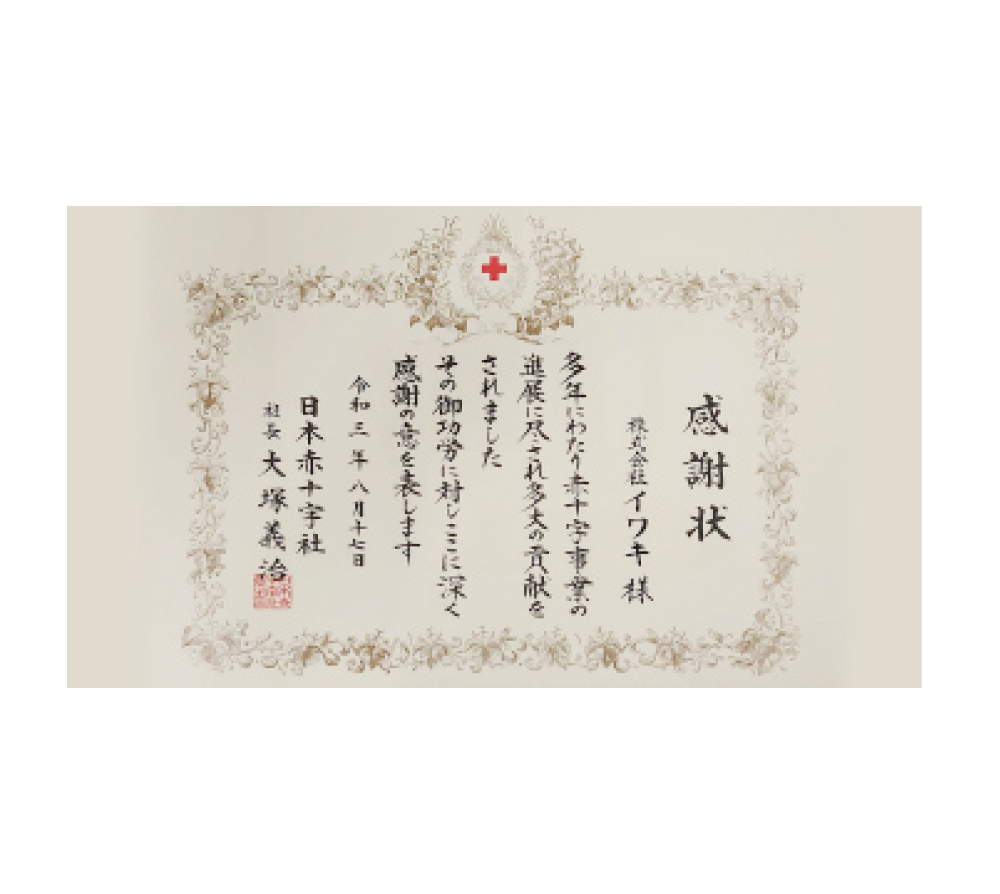 感謝状
株式会社イワキ様
多年にわたり赤十字事業の
進展に尽され多大の貢献を
されました
その御功労に対しここに深く
感謝の意を表します
令和三年八月十七日
日本赤十字社
社長 大塚義治